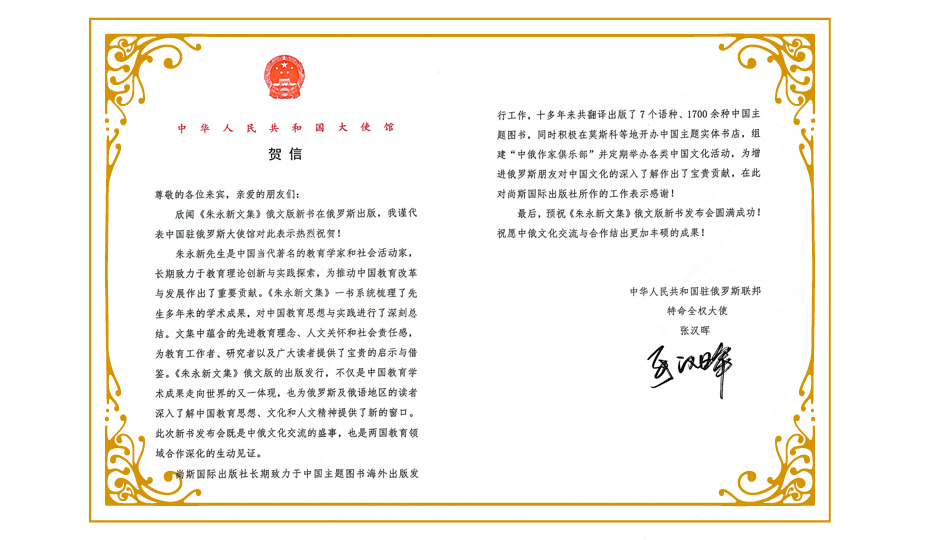 中华人民共和国大使馆
贺信
尊敬的各位来宾，亲爱的朋友们：
欣闻《朱永新文集》俄文版新书在俄罗斯出版，我谨代
表中国驻俄罗斯大使馆对此表示热烈祝贺！
朱永新先生是中国当代著名的教育学家和社会活动家，
长期致力于教育理论创新与实践探索，为推动中国教育改革
与发展作出了重要贡献。《朱永新文集》一书系统梳理了先
生多年来的学术成果，对中国教育思想与实践进行了深刻总
结。文集中蕴含的先进教育理念、人文关怀和社会责任感，
为教育工作者、研究者以及广大读者提供了宝贵的启示与借
鉴。《朱永新文集》俄文版的出版发行，不仅是中国教育学
术成果走向世界的又一体现，也为俄罗斯及俄语地区的读者
深入了解中国教育思想、文化和人文精神提供了新的窗口。
此次新书发布会既是中俄文化交流的盛事，也是两国教育领
域合作深化的生动见证。
尚斯国际出版社长期致力于中国主题图书海外出版发
行工作，十多年来共翻译出版了7个语种、1700余种中国主
题图书，同时积极在莫斯科等地开办中国主题实体书店，组
建“中俄作家俱乐部”并定期举办各类中国文化活动，为增
进俄罗斯朋友对中国文化的深入了解作出了宝贵贡献，在此
对尚斯国际出版社所作的工作表示感谢！
最后，预祝《朱永新文集》俄文版新书发布会圆满成功！
祝愿中俄文化交流与合作结出更加丰硕的成果！
中华人民共和国驻俄罗斯联邦
特命全权大使
张汉晖
张汉晖